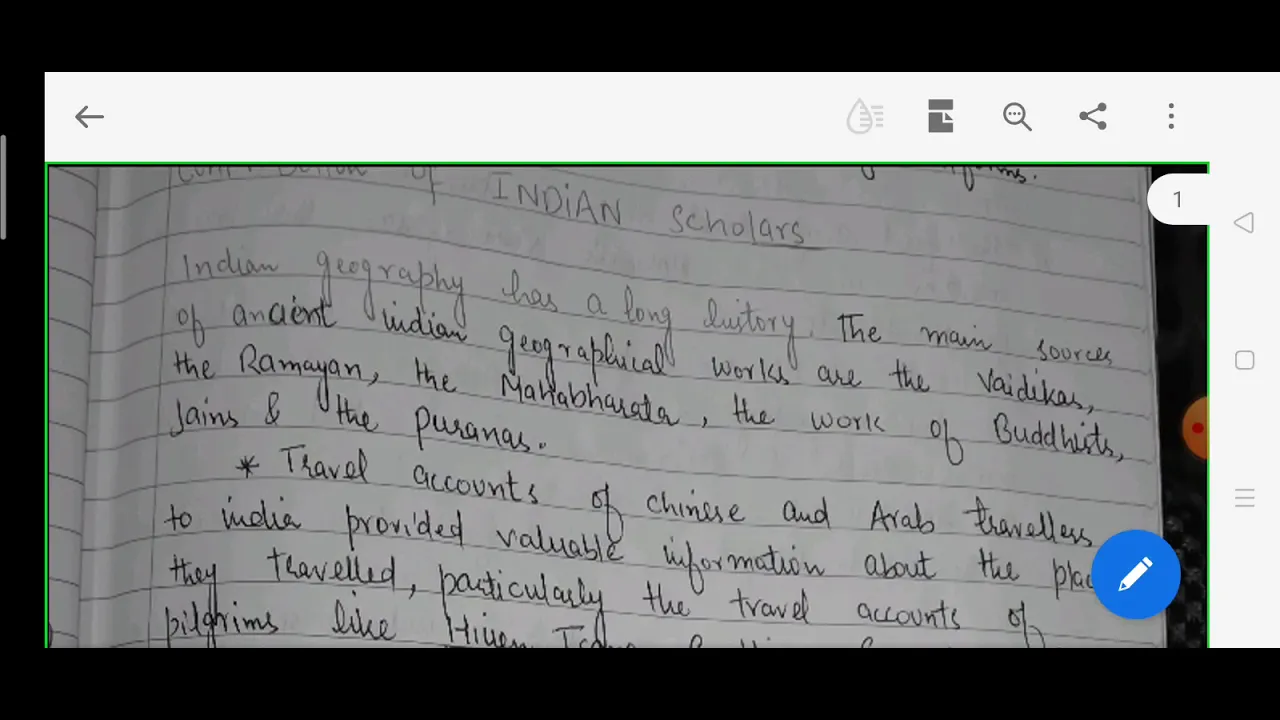 of INDIAN Scholars
Indian geography has a long history. The main sources
of ancient indian geographical works are the Vaidikas,
the Ramayan, the Mahabharata, the work of Buddhists,
Jains & the puranas.
* Travel accounts of chinese and Arab travellers
to india provided valuable information about the
they travelled, particularly the travel accounts of
pilgrims like Hiuen
1